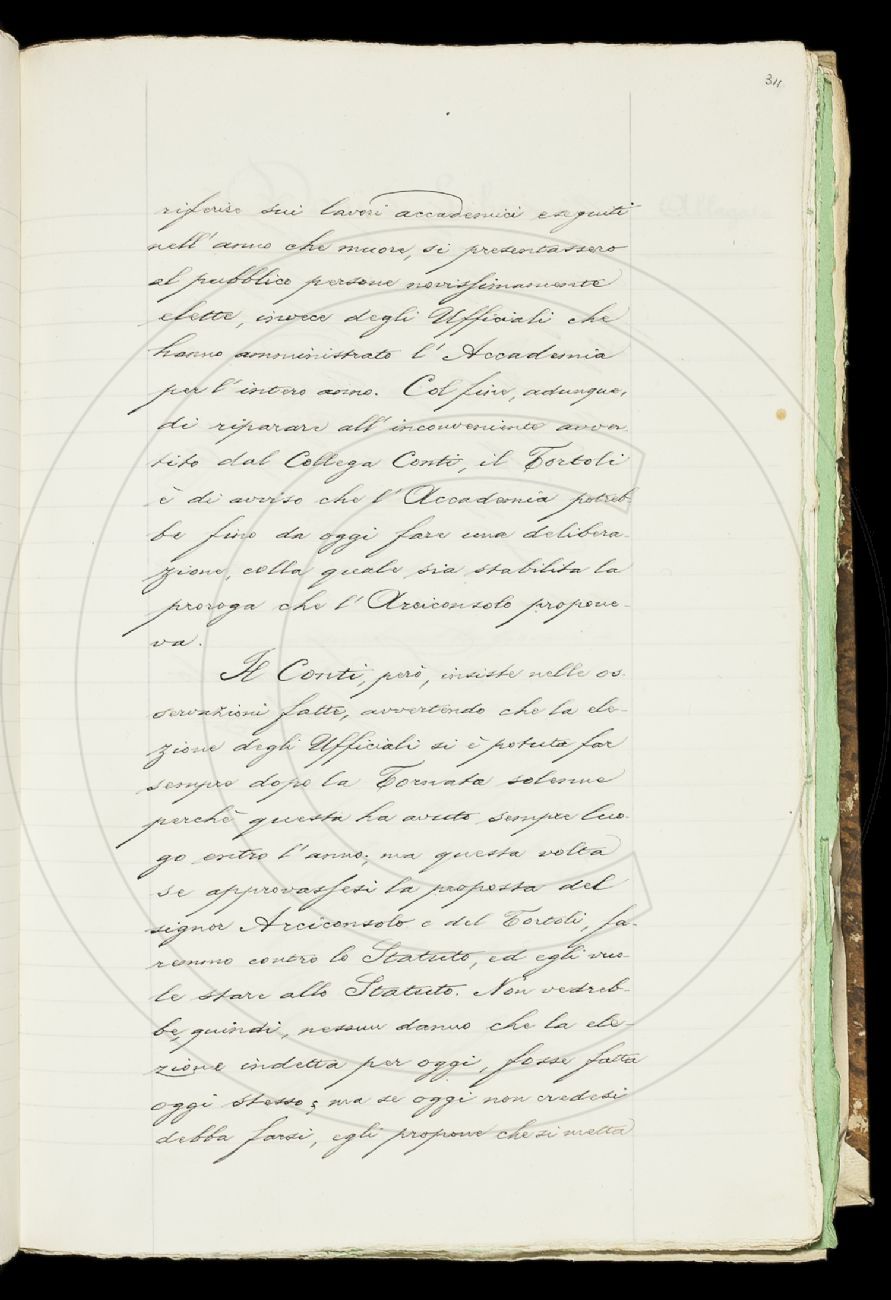 34
riferire sui lavori accademici eseguiti
nell'anno che muore, si presentassero
al pubblico persone novissimamente
elette, invece degli Ufficiali che
hanno amministrato l'Accademia
per l'intero anno. Col fine, adunque,
di riparare all'inconveniente avver-
tito dal Collega Conti, il Tortoli
è di avviso che l'Accademia potreb-
be fino da oggi fare una delibera-
zione, colla quale sia stabilita la
proroga che l'Arciconsolo propone-
va.
Il Conti, però, insiste nelle os-
servazioni fatte, avvertendo che la ele-
zione degli Ufficiali si è potuta far
sempre dopo la Tornata solenne
perchè questa ha avuto sempre luo-
go entro l'anno; ma questa volta
se approvassesi la proposta del
signor Arciconsolo e del Tortoli, fa-
remmo contro lo Statuto, ed egli vuo-
le stare allo Statuto. Non vedreb-
be, quindi, nessun danno che la ele-
zione indetta per oggi, fosse fatta
oggi stesso; ma se oggi non credesi
debba farsi, egli propone che si metta